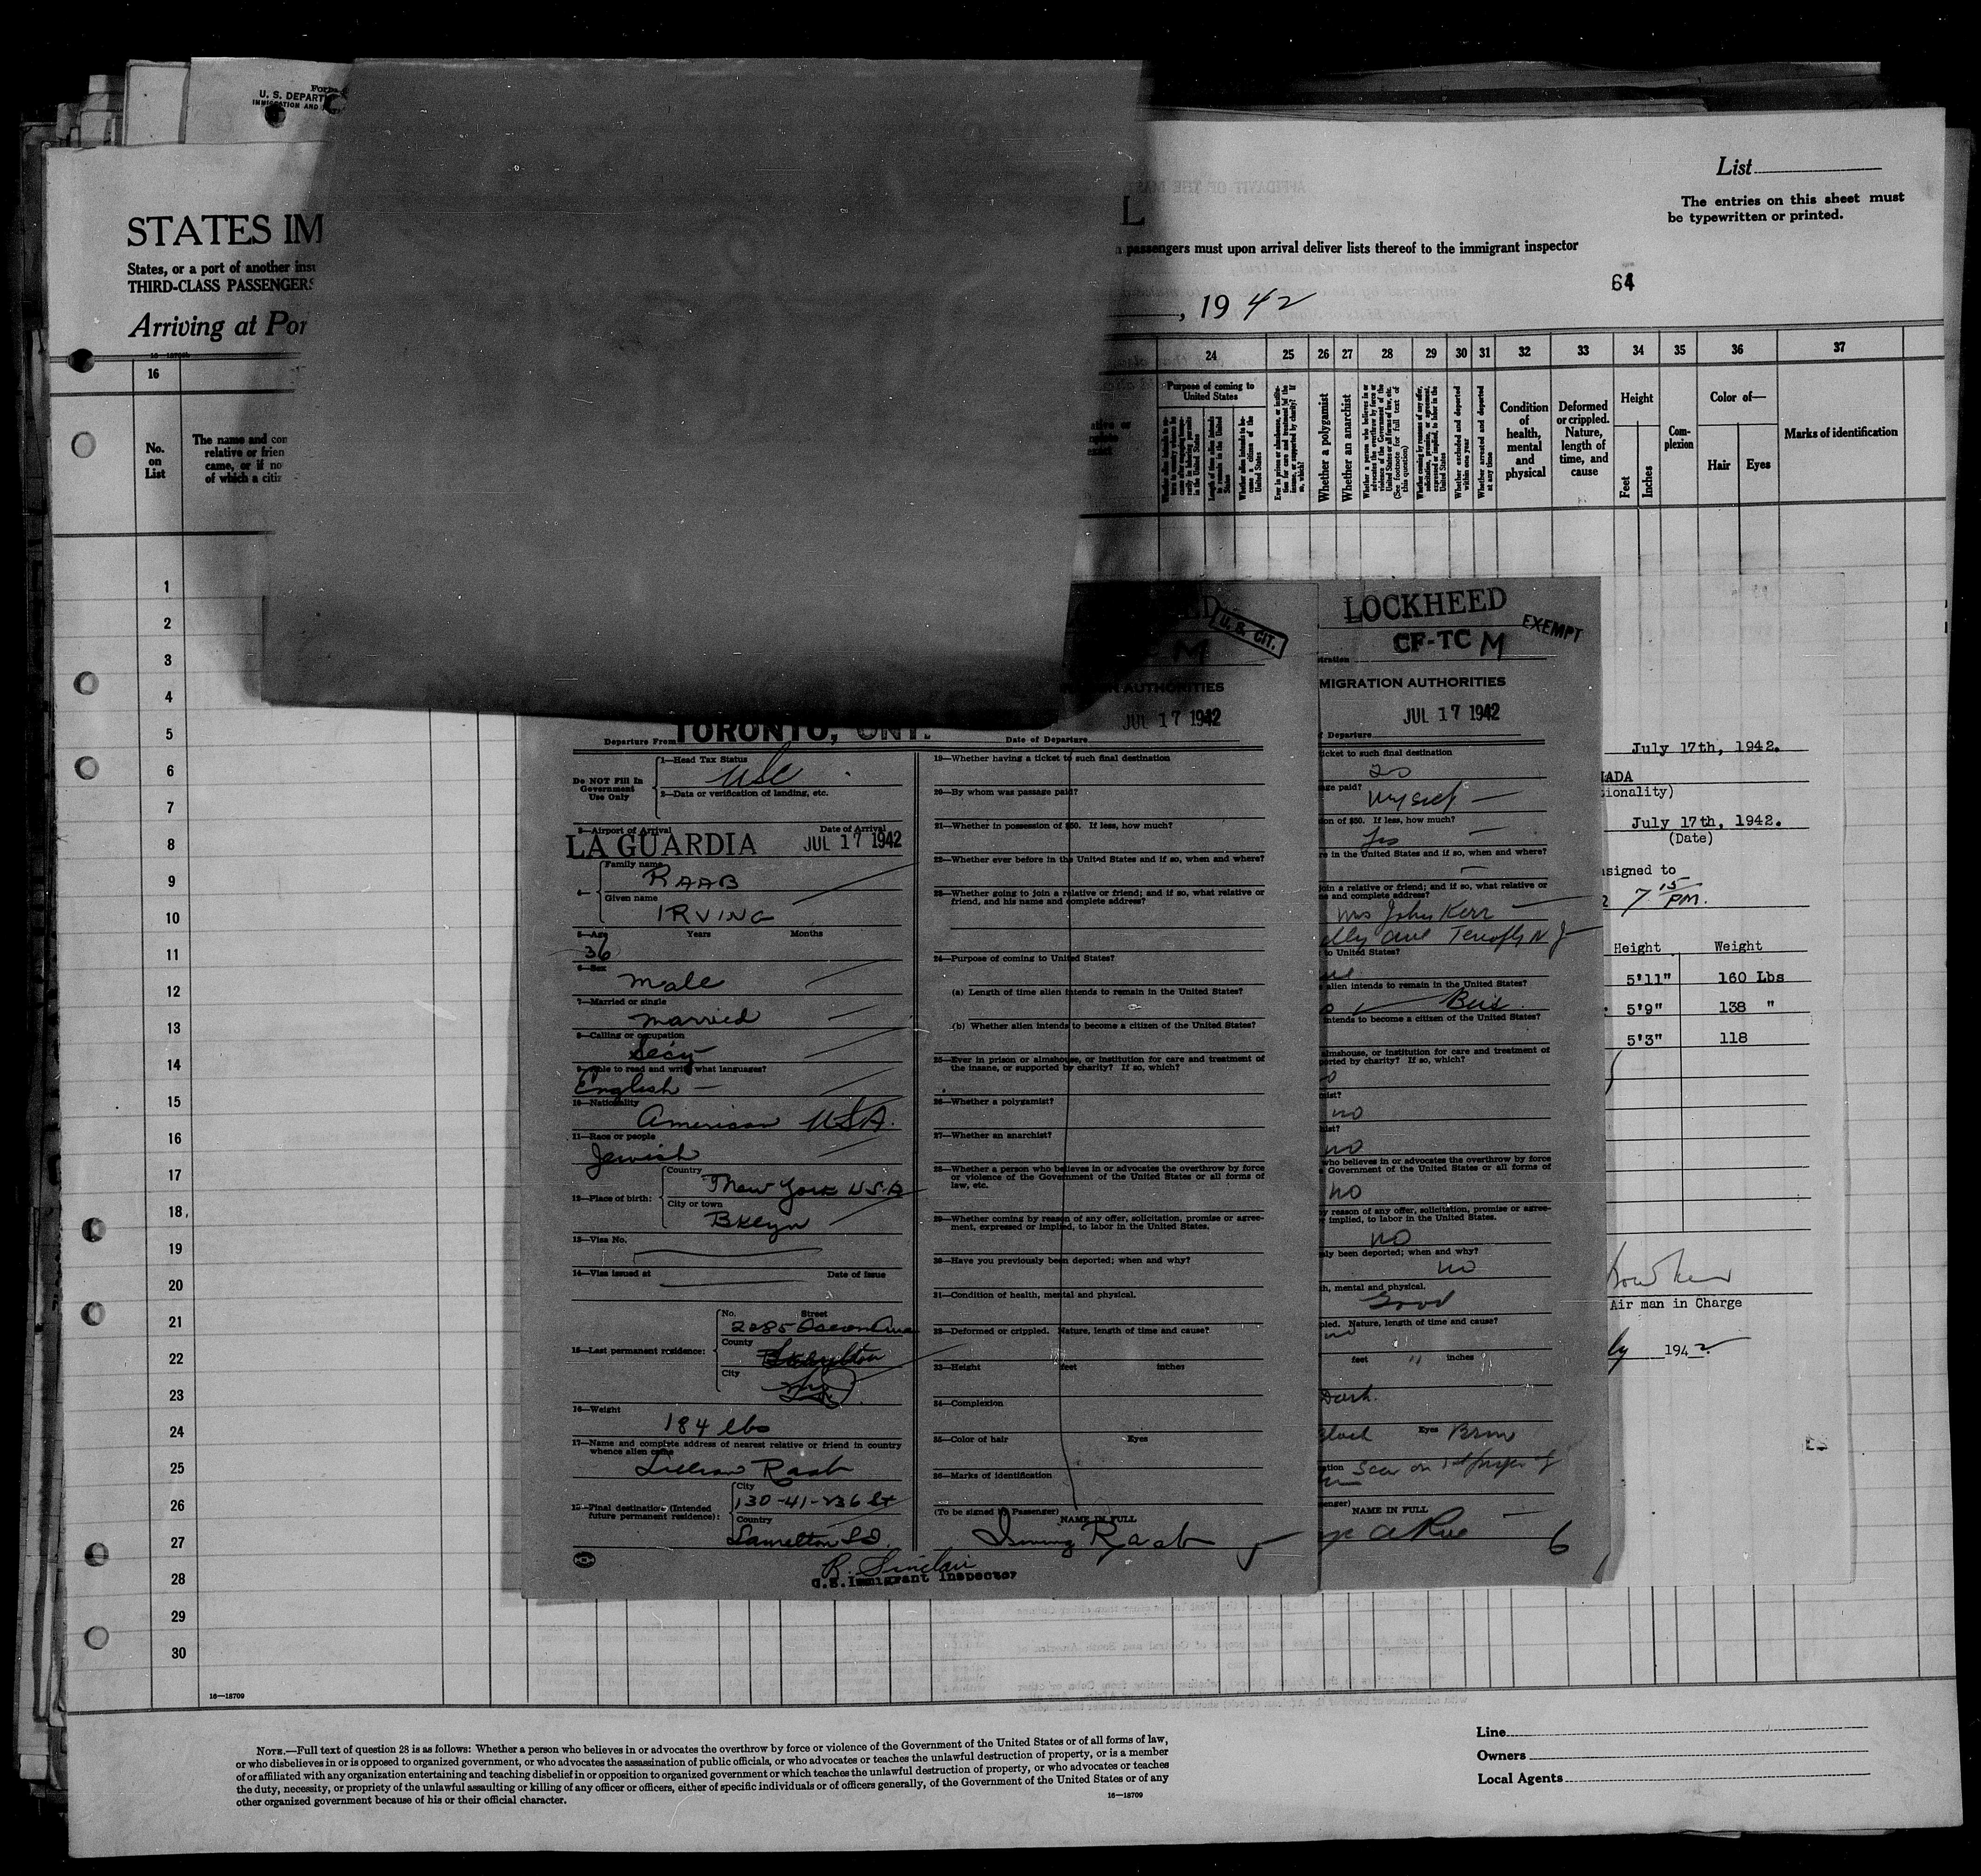 Form
U. S. DEPART
IMMIGRATION AND
List
The entries on this sheet must
be typewritten or printed.
STATES IM
L
passengers must upon arrival deliver lists thereof to the immigrant inspector
States, or a port of another insu
THIRD-CLASS PASSENGERS
64
Arriving at Por
, 19 42
16
24
25
26
27
28
29
30
31
32
33
34
35
36
37
No.
on
List
The name and com
relative or frien
came, or if no
of which a citiz
Purpose of coming to
United States
Whether a polygamist
Whether an anarchist
Condition
of
health,
mental
and
physical
Deformed
or crippled.
Nature,
length of
time, and
cause
Height
Feet
Inches
Com-
plexion
Color of—
Hair
Eyes
Marks of identification
1
2
3
4
5
6
7
8
9
10
11
12
13
14
15
16
17
18
19
20
21
22
23
24
25
26
27
28
29
30
U. S. CIT.
M
N AUTHORITIES
JUL 17 1942
Departure From TORONTO, ONT.
Date of Departure
Do NOT Fill In
Government
Use Only
1—Head Tax Status
USC
2—Data or verification of landing, etc.
3—Airport of Arrival
Date of Arrival
LA GUARDIA JUL 17 1942
4—
Family name
RAAB
Given name
IRVING
5—Age Years Months
36
6—Sex
Male
7—Married or single
Married
8—Calling or occupation
Secy
9—Able to read and write what languages?
English
10—Nationality
American USA.
11—Race or people
Jewish
12—Place of birth:
Country
New York U.S.A
City or town
Bklyn
13—Visa No.
14—Visa issued at Date of Issue
15—Last permanent residence:
No. Street
2085 Ocean Ave
County
City
16—Weight
184 lbs
17—Name and complete address of nearest relative or friend in country
whence alien came
Lillian Raab
18—Final destination: (Intended
future permanent residence):
City
130-41-236 St
Country
Laurelton L I.
R. Sinclair
U.S. Immigrant Inspector
19—Whether having a ticket to such final destination
20—By whom was passage paid?
21—Whether in possession of $50. If less, how much?
22—Whether ever before in the United States and if so, when and where?
23—Whether going to join a relative or friend; and if so, what relative or
friend, and his name and complete address?
24—Purpose of coming to United States?
(a) Length of time alien intends to remain in the United States?
(b) Whether alien intends to become a citizen of the United States?
25—Ever in prison or almshouse, or institution for care and treatment of
the insane, or supported by charity? If so, which?
26—Whether a polygamist?
27—Whether an anarchist?
28—Whether a person who believes in or advocates the overthrow by force
or violence of the Government of the United States or all forms of
law, etc.
29—Whether coming by reason of any offer, solicitation, promise or agree-
ment, expressed or implied, to labor in the United States.
30—Have you previously been deported; when and why?
31—Condition of health, mental and physical.
32—Deformed or crippled. Nature, length of time and cause?
33—Height feet inches
34—Complexion
35—Color of hair Eyes
36—Marks of identification
(To be signed by Passenger)
NAME IN FULL
Irving Raab
5
LOCKHEED
EXEMPT
CF-TC M
stration
MIGRATION AUTHORITIES
JUL 17 1942
f Departure
ticket to such final destination
age paid?
Myself
on of $50. If less, how much?
Yes
re in the United States and if so, when and where?
join a relative or friend; and if so, what relative or
e and complete address?
Mrs John Kerr
Ave Tenafly N J
to United States?
alien intends to remain in the United States?
Bus.
intends to become a citizen of the United States?
almshouse, or institution for care and treatment of
ported by charity? If so, which?
mist?
no
hist?
no
who believes in or advocates the overthrow by force
e Government of the United States or all forms of
no
y reason of any offer, solicitation, promise or agree-
r implied, to labor in the United States.
no
sly been deported; when and why?
no
th, mental and physical.
Good
pled. Nature, length of time and cause?
no
feet 11 inches
Dark.
Black Eyes Brn
ation Scar on 1st finger of
senger) NAME IN FULL
6
July 17th, 1942.
NADA
tionality)
July 17th, 1942.
(Date)
signed to
7 15 PM.
Height Weight
5'11" 160 Lbs
5'9" 138 "
5'3" 118
Air man in Charge
ly 1942
16—18709
NOTE.—Full text of question 28 is as follows: Whether a person who believes in or advocates the overthrow by force or violence of the Government of the United States or of all forms of law,
or who disbelieves in or is opposed to organized government, or who advocates the assassination of public officials, or who advocates or teaches the unlawful destruction of property, or is a member
of or affiliated with any organization entertaining and teaching disbelief in or opposition to organized government or which teaches the unlawful destruction of property, or who advocates or teaches
the duty, necessity, or propriety of the unlawful assaulting or killing of any officer or officers, either of specific individuals or of officers generally, of the Government of the United States or of any
other organized government because of his or their official character.
16—18709
Line
Owners
Local Agents